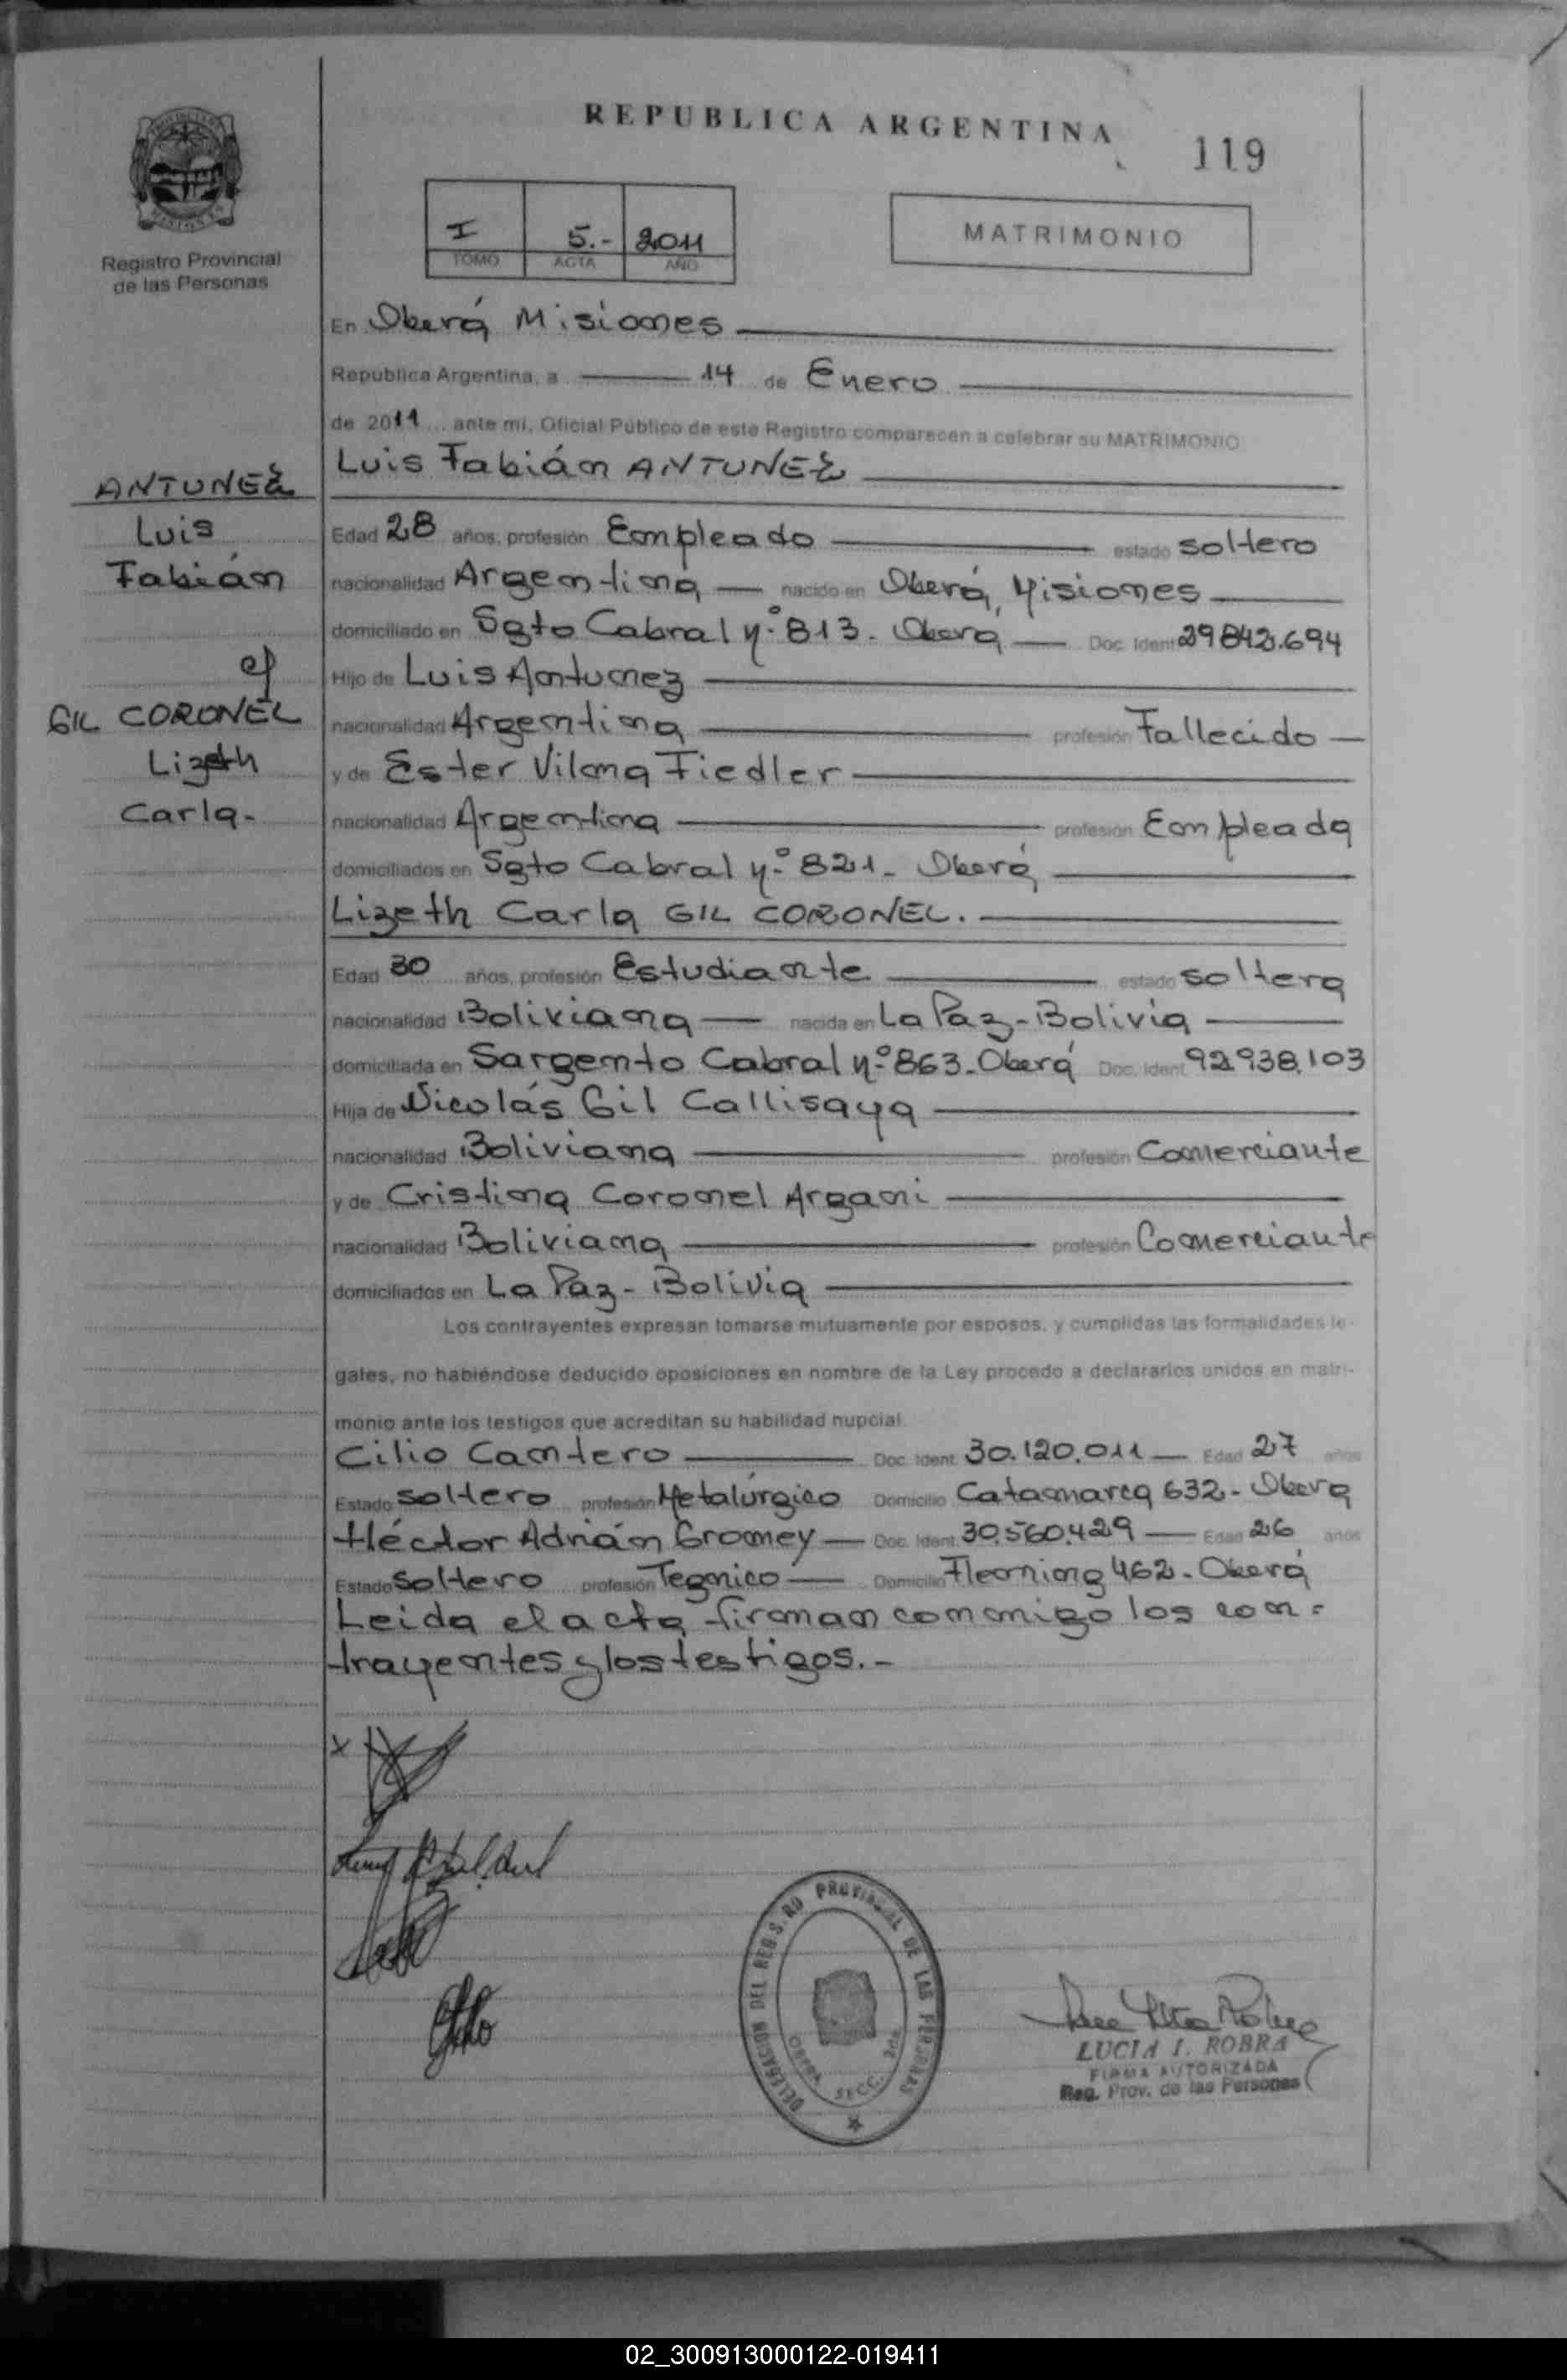 REPUBLICA ARGENTINA
119
I 5.- 2011
TOMO ACTA AÑO
MATRIMONIO
Registro Provincial
de las Personas
En Oberá Misiones
Republica Argentina, a 14 de Enero
de 2011 ante mi, Oficial Público de este Registro comparecen a celebrar su MATRIMONIO
Luis Fabián ANTUNEZ
ANTUNEZ
Luis
Fabián
c/
GIL CORONEL
Lizeth
Carla-
Edad 28 años, profesión Empleado estado soltero
nacionalidad Argentina nacido en Oberá, Misiones
domiciliado en Sgto Cabral Nº 813- Oberá Doc. Ident 29842.694
Hijo de Luis Antunez
nacionalidad Argentina profesión Fallecido
y de Ester Vilma Fiedler
nacionalidad Argentina profesión Empleada
domiciliados en Sgto Cabral Nº 821- Oberá
Lizeth Carla GIL CORONEL.
Edad 30 años, profesión Estudiante estado soltera
nacionalidad Boliviana nacida en La Paz-Bolivia
domiciliada en Sargento Cabral Nº 863-Oberá Doc. Ident 92938.103
Hija de Nicolás Gil Callisaya
nacionalidad Boliviana profesión Comerciante
y de Cristina Coronel Argani
nacionalidad Boliviana profesión Comerciante
domiciliados en La Paz- Bolivia
Los contrayentes expresan tomarse mutuamente por esposos, y cumplidas las formalidades le-
gales, no habiéndose deducido oposiciones en nombre de la Ley procedo a declararlos unidos en matri-
monio ante los testigos que acreditan su habilidad nupcial.
Cilio Cantero Doc. Ident. 30.120.011 Edad 27 años
Estado soltero profesión Metalúrgico Domicilio Catamarca 632- Oberá
Héctor Adrián Gromey Doc. Ident. 30.560.429 Edad 26 años
Estado soltero profesión Tegnico Domicilio Fleming 462- Oberá
Leida el acta firman conmigo los con=
trayentes y los testigos.-
x
DELEGACION DEL REGISTRO PROVINCIAL DE LAS PERSONAS
OBERA SECC. 2da
LUCIA I. ROBRA
FIRMA AUTORIZADA
Reg. Prov. de las Personas
02_300913000122-019411